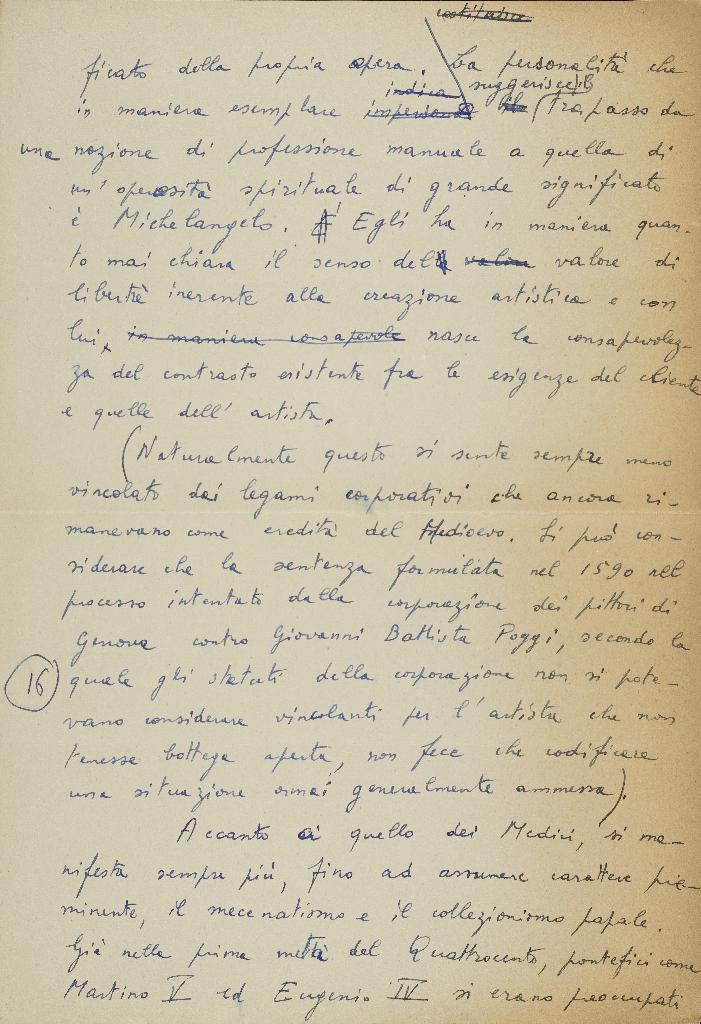 costituisce
ficato della propria opera. La personalità che
indica suggerisce il
in maniera esemplare impersona il (trapasso da
una nozione di professione manuale a quella di
un' operosità spirituale di grande significato
è Michelangelo. Egli ha in maniera quan-
to mai chiara il senso del valore valore di
libertà inerente alla creazione artistica e con
lui, in maniera consapevole nasce la consapevolez-
za del contrasto esistente fra le esigenze del cliente
e quelle dell' artista.
(Naturalmente questo si sente sempre meno
vincolato dai legami corporativi che ancora ri-
manevano come eredità del Medioevo. Si può con-
siderare che la sentenza formulata nel 1590 nel
processo intentato dalla corporazione dei pittori di
Genova contro Giovanni Battista Poggi, secondo la
16 quale gli statuti della corporazione non si pote-
vano considerare vincolanti per l' artista che non
tenesse bottega aperta, non fece che codificare
una situazione ormai generalmente ammessa).
Accanto a quello dei Medici, si ma-
nifesta sempre più, fino ad assumere carattere pre-
minente, il mecenatismo e il collezionismo papale.
Già nella prima metà del Quattrocento, pontefici come
Martino V ed Eugenio IV si erano preoccupati